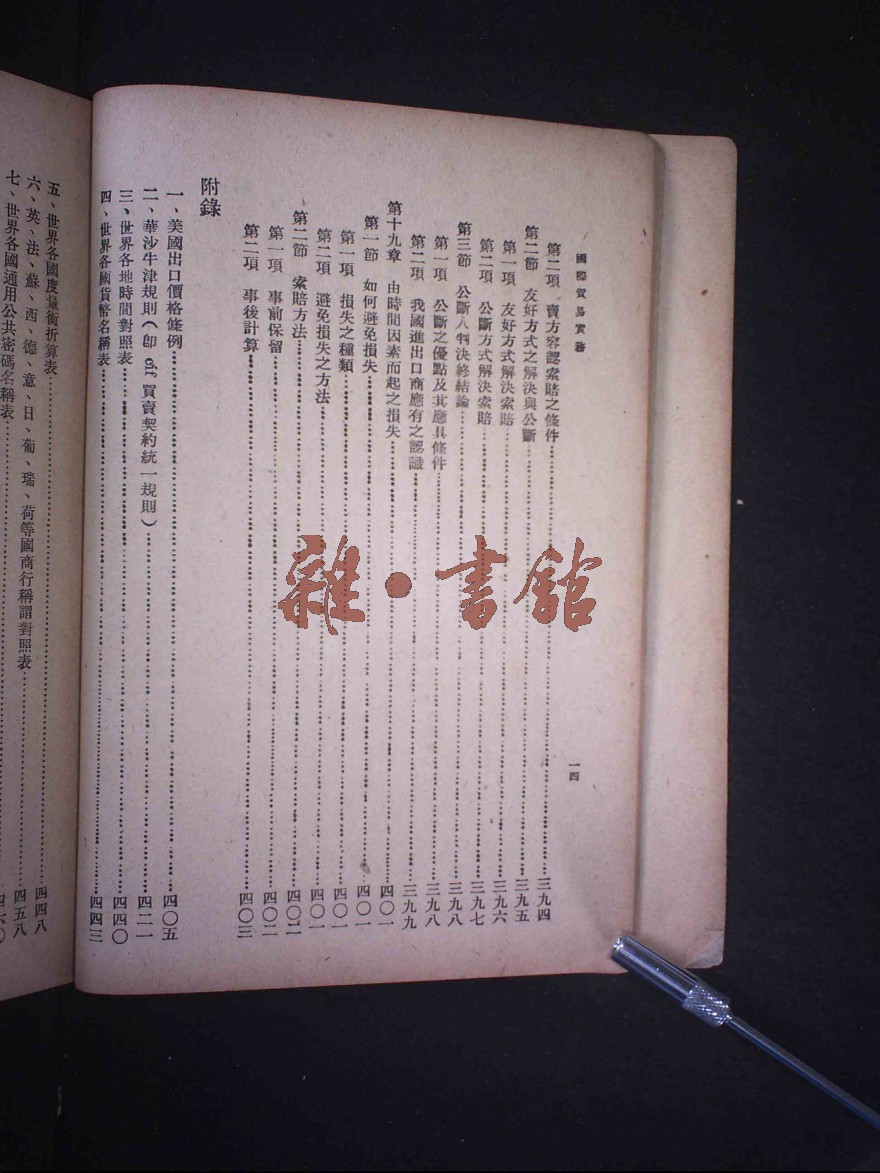 國際貿易實務
一四
第二項 賣方容認索賠之條件 三九四
第二節 友好方式之解決與公斷 三九五
第一項 友好方式解決索賠 三九六
第二項 公斷方式解決索賠 三九七
第三節 公斷人判決終結論 三九八
第一項 公斷之優點及其應具條件 三九八
第二項 我國進出口商應有之認識 三九九
第十九章 由時間因素而起之損失 四〇一
第一節 如何避免損失 四〇一
第一項 損失之種類 四〇一
第二項 避免損失之方法 四〇一
第二節 索賠方法 四〇二
第一項 事前保留 四〇二
第二項 事後計算 四〇三
附錄
一、美國出口價格條例 四〇五
二、華沙牛津規則(卽 cif 買賣契約統一規則) 四二一
三、世界各地時間對照表 四四〇
四、世界各國貨幣名稱表 四四三
五、世界各國度量衡折算表 四四八
六、英、法、蘇、西、德、意、日、葡、瑞、荷等國商行稱謂對照表 四五八
七、世界各國通用公共密碼名稱表 四六〇
雜·書館